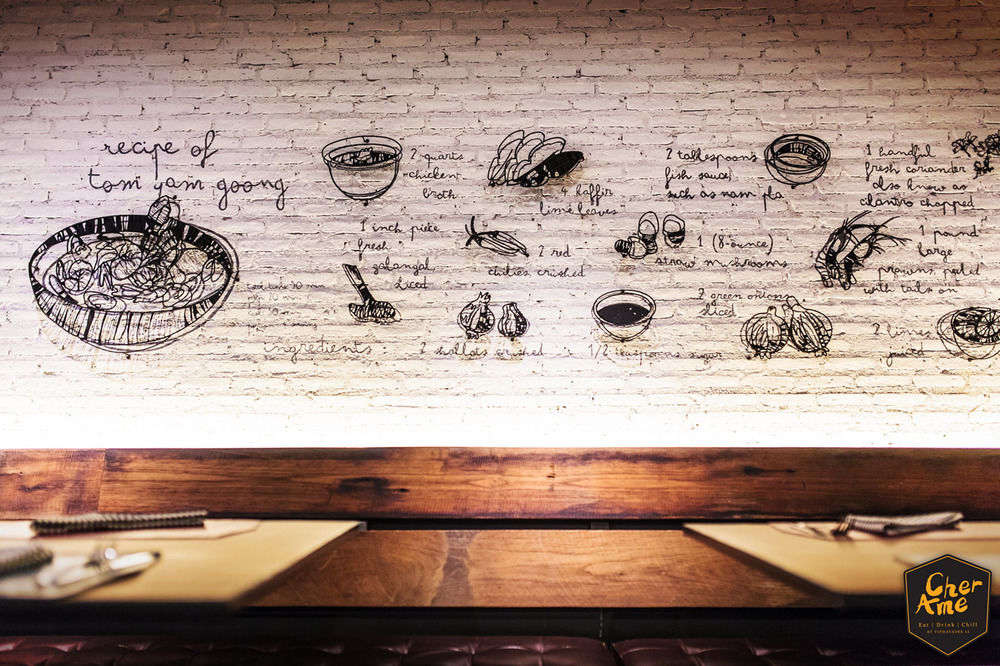 recipe of
tom yam goong
2 quarts
chicken
broth
4 kaffir
lime leaves
2 tablespoons
fish sauce,
such as nam pla
1 handful
fresh coriander
also know as
cilantro chopped
1 inch piece
fresh
galangal,
sliced
2 red
chilies, crushed
1 (8-ounce)
straw mushrooms
1 pound
large
prawns, peeled
with tails on
ingredients:
2 shallots crushed
1/2 teaspoons sugar
2 green onions
sliced
2 limes
juiced
Cher
Ame
Eat | Drink | Chill